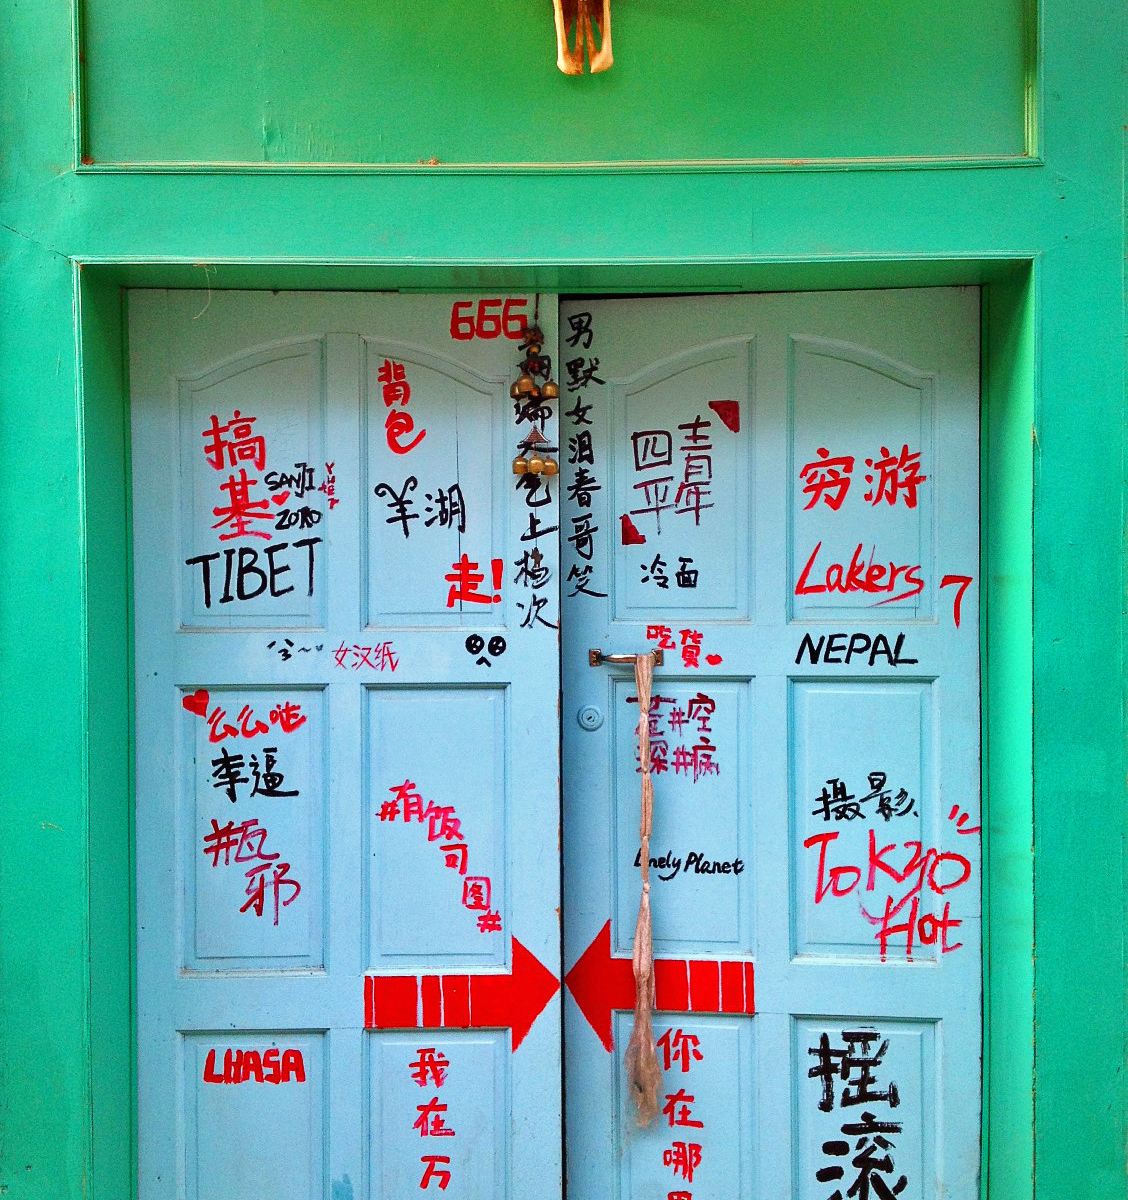 666
男默女泪春哥笑
背包
搞基
SANJI
ZORO
TIBET
羊湖
走!
上档次
四青
平年
冷面
穷游
Lakers 7
女汉纸
吃货
NEPAL
么么哒
李逼
#瓶邪
#有饭可图#
#空
深#病
Lonely Planet
摄影
Tokyo
Hot
LHASA
我在万
你在哪
摇滚